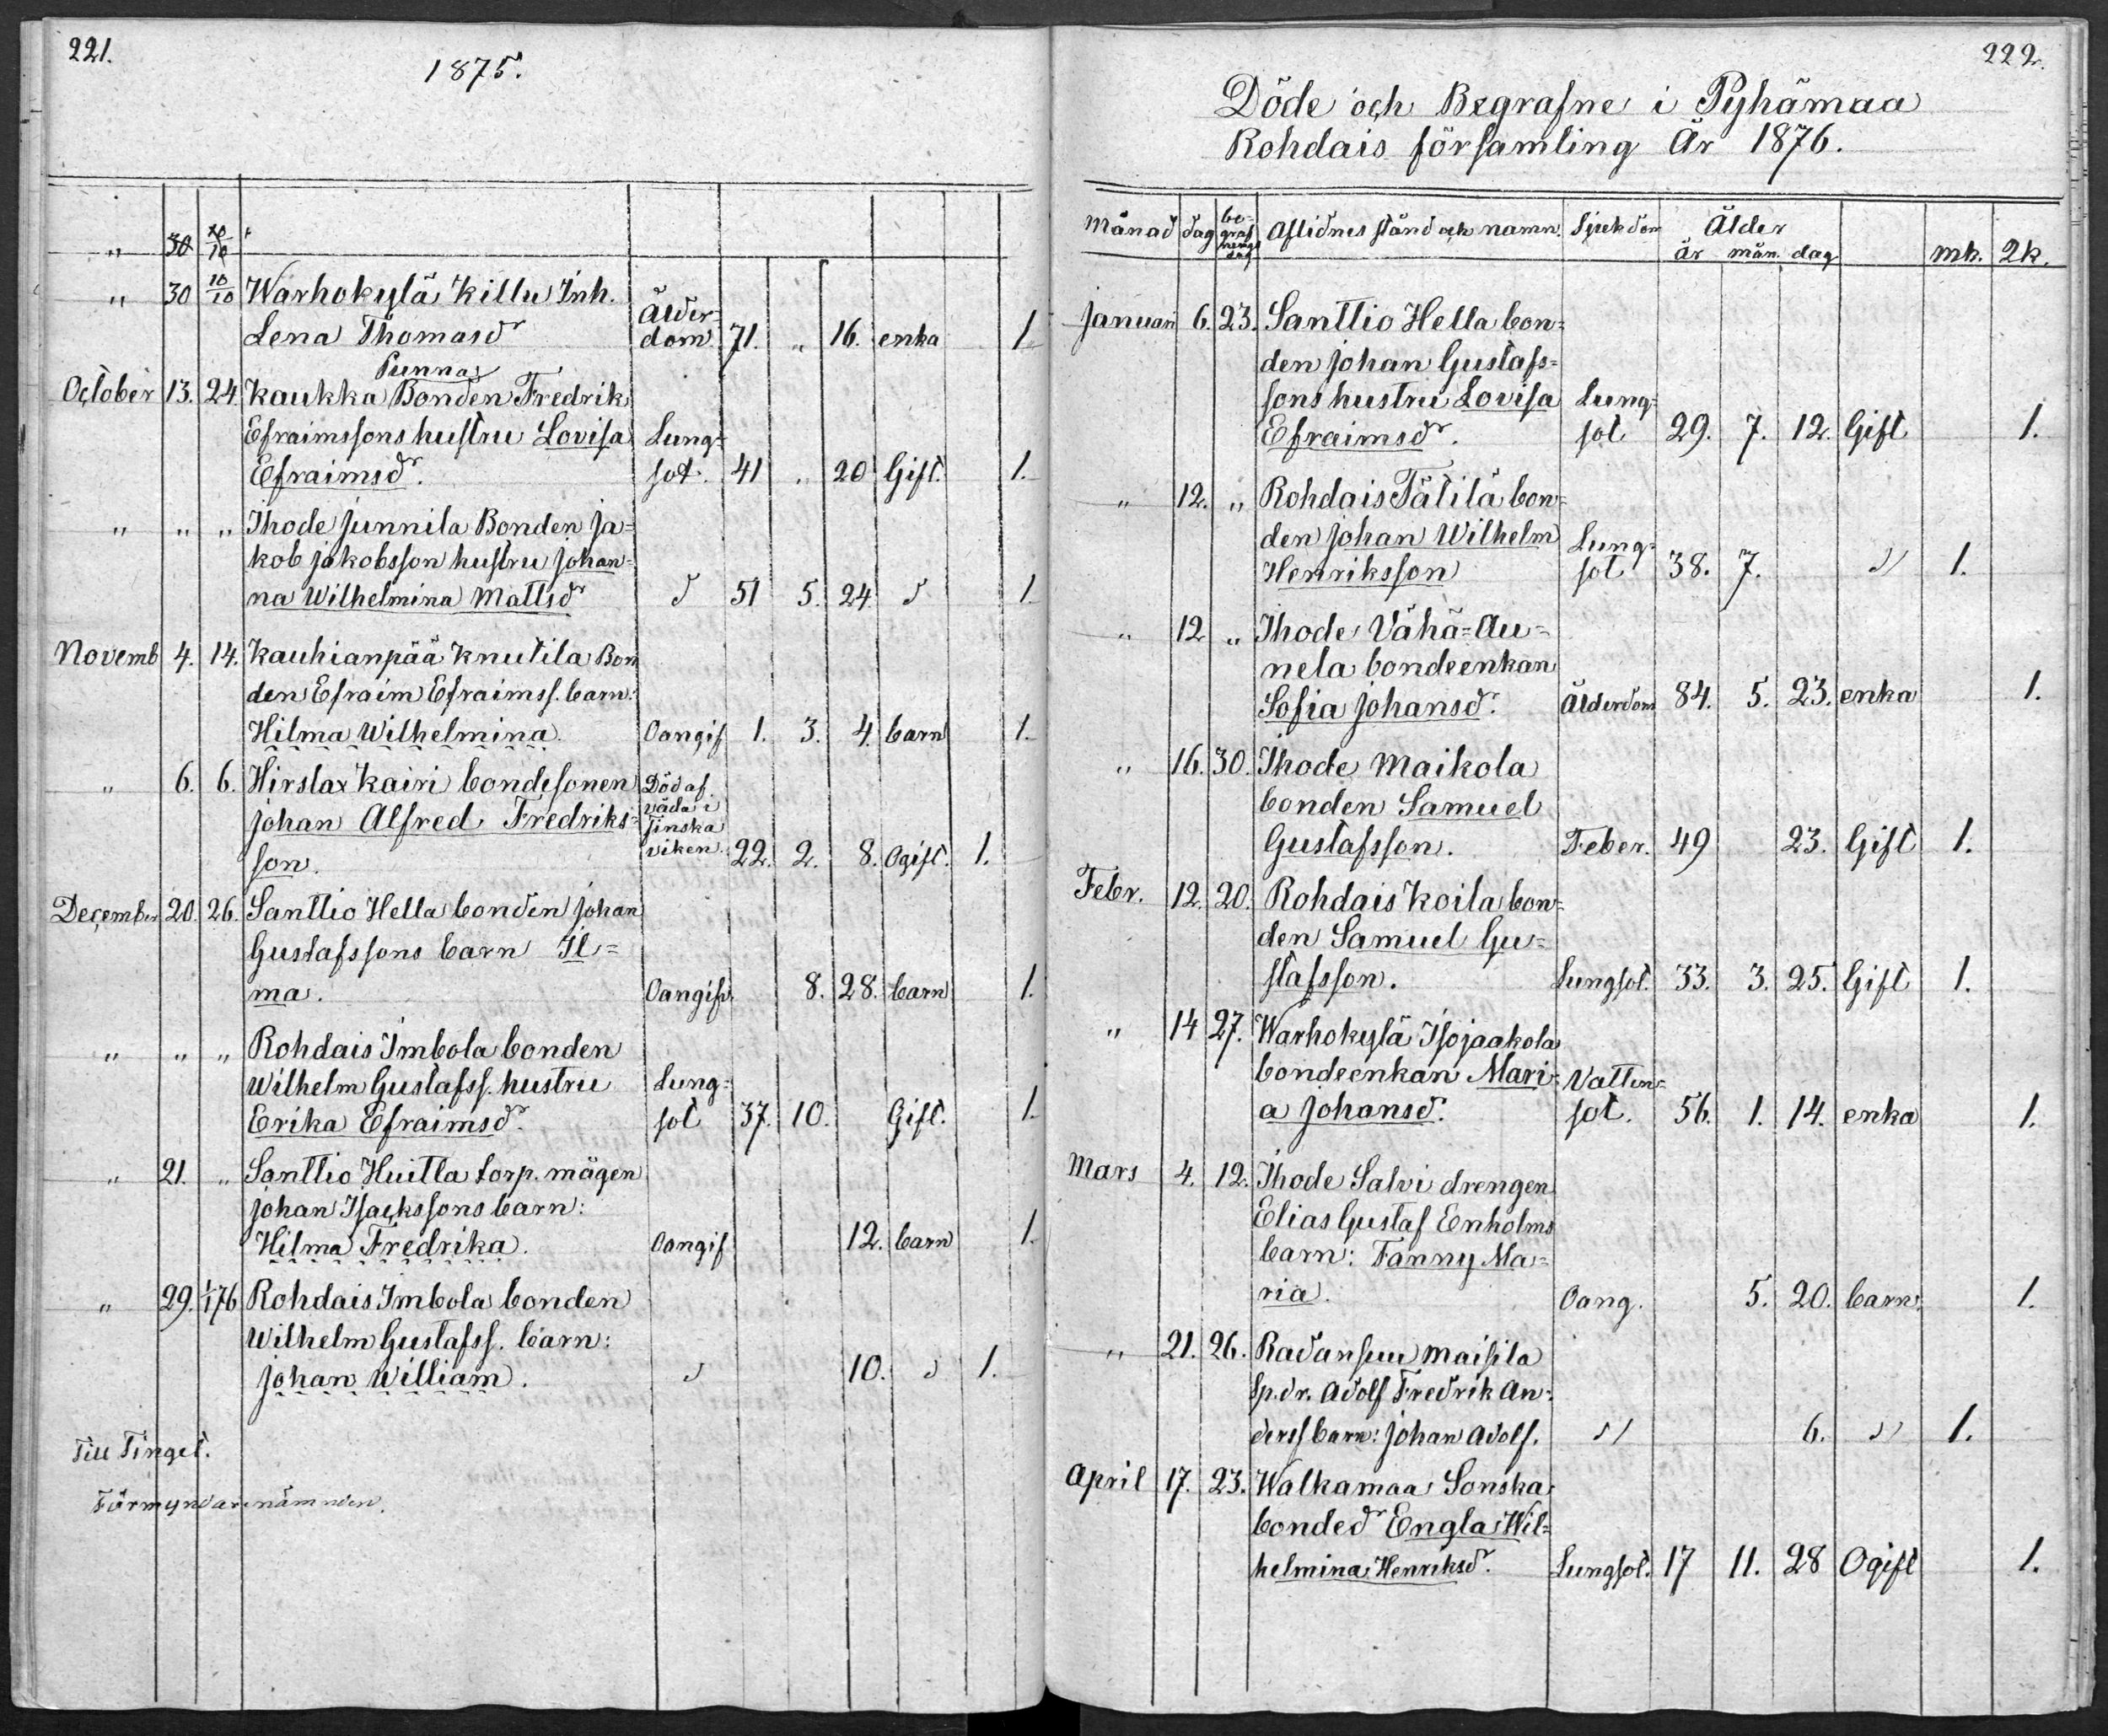 221.
1875.
" 30 10/10
" 30 10/10 Warhokylä Killu Inh. Ålder-
Lena Thomasd:r dom. 71. " 16. enka 1
Punna
October 13. 24. Kaukka Bonden Fredrik
Efraimssons hustru Lovisa Lung-
Efraimsd:r. sot. 41 " 20 Gift. 1.
" " " Ihode Junnila Bonden Ja=
kob Jakobsson hustru Johan=
na Wilhelmina Mattsd:r d 51 5. 24. d 1.
Novemb 4. 14. Kauhianpää Knutila Bon
den Efraim Efraimss. barn:
Hilma Wilhelmina. Oangif 1. 3. 4. barn 1.
" 6. 6. Hirslax Kairi bondesonen Död af
Johan Alfred Fredriks= våda i
Tinska
son. viken. 22. 2. 8. Ogift. 1.
December 20. 26. Santtio Hella bonden Johan
Gustafssons barn Il=
ma. Oangifv. 8. 28. barn 1.
" " " Rohdais Imbola bonden
Wilhelm Gustafss. hustru Lung=
Erika Efraimsd:r. sot 37. 10. Gift. 1.
" 21. " Santtio Huitla torp. mågen
Johan Isackssons barn:
Hilma Fredrika. Oangif 12. barn 1.
" 29. 1/1 76 Rohdais Imbola bonden
Wilhelm Gustafss. barn:
Johan William. d 10. d 1.
Till Tinget.
Förmyndarenämnden.
222.
Döde och Begrafne i Pyhämaa
Rohdais församling År 1876.
Månad dag be-graf nings dag Aflidnes stånd och namn. Sjukdom Ålder
år mån. dag mk. 2k.
Januari 6. 23. Santtio Hella bon=
den Johan Gustafs=
sons hustru Lovisa Lung-
Efraimsd:r. sot 29. 7. 12. Gift 1.
" 12. " Rohdais Tätilä bon=
den Johan Wilhelm Lung-
Henriksson sot 38. 7. d 1.
" 12 " Ihode Vähä=Au=
nela bondeenkan
Sofia Johansd:r. Ålderdom 84. 5. 23. enka 1.
" 16. 30. Ihode Maikola
bonden Samuel
Gustafsson. Feber. 49 23. Gift 1.
Febr. 12. 20. Rohdais Koila bon=
den Samuel Gu=
stafsson. Lungsot. 33. 3. 25. Gift 1.
" 14 27. Warhokylä Isojaakola
bondeenkan Mari= Vatten=
a Johansd:r. sot. 56. 1. 14. enka 1.
Mars 4. 12. Ihode Salvi drengen
Elias Gustaf Enholms
barn: Fanny Ma=
ria. Oang. 5. 20. barn. 1.
" 21. 26. Radansuu Maisila
Sp.dr. Adolf Fredrik An=
derss barn: Johan Adolf. d 6. d 1.
April 17. 23. Walkamaa Sonska
bonded:r Engla Wil=
helmina Henriksd:r. Lungsot. 17 11. 28 Ogift 1.